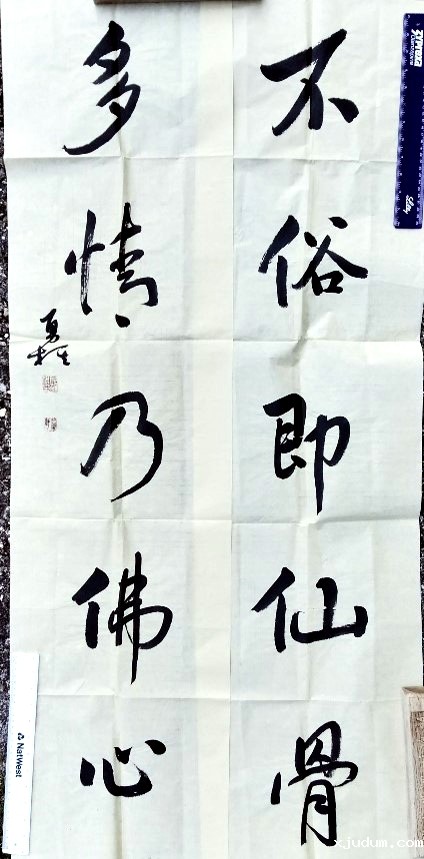 不俗即仙骨
多情乃佛心
NatWest
xjudum.com